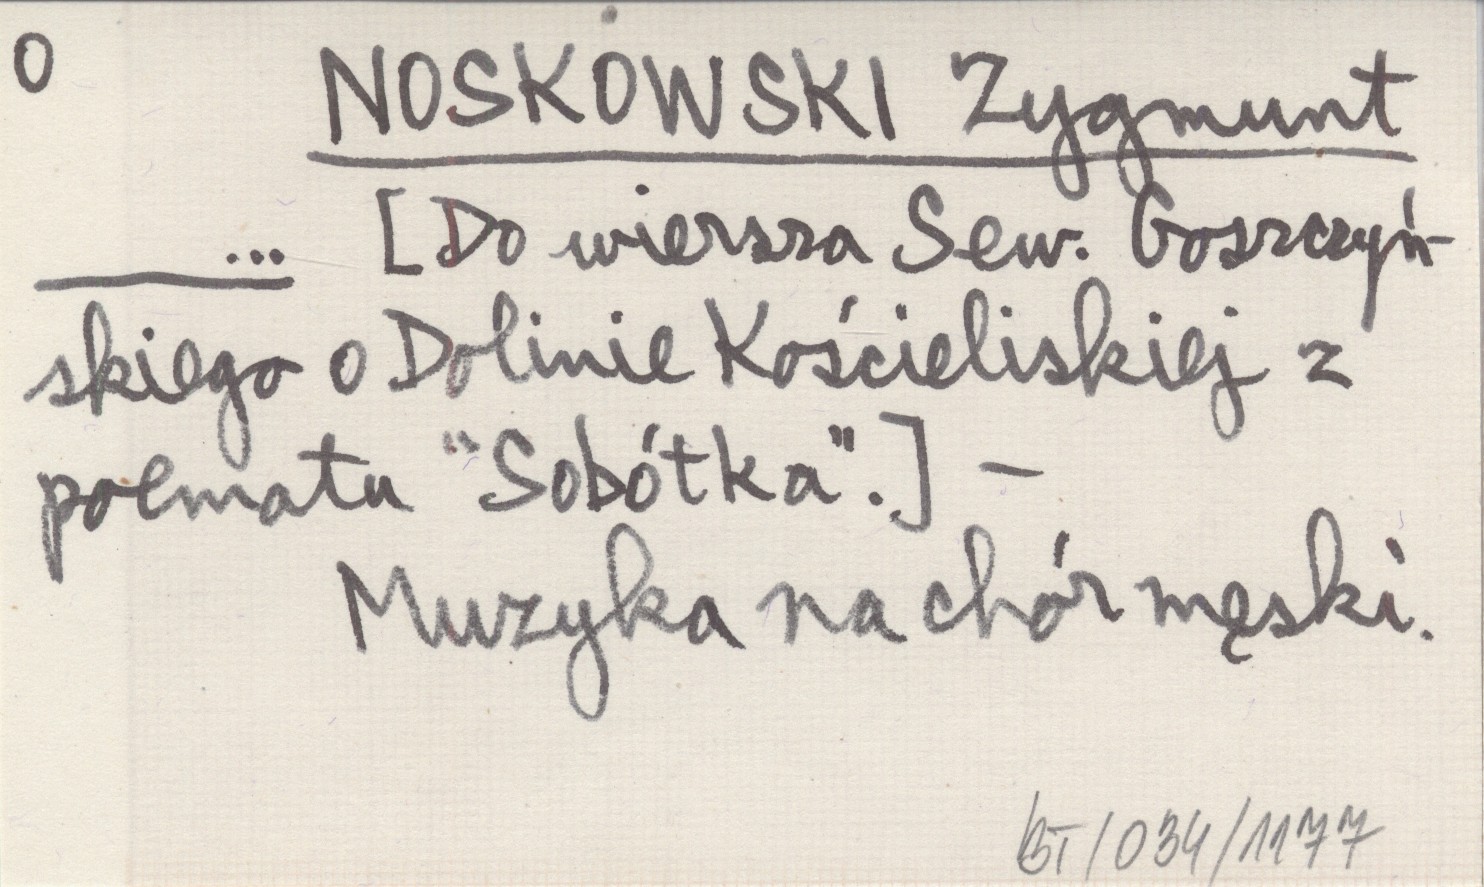 O
NOSKOWSKI Zygmunt
... [Do wiersza Sew. Goszczyń-
skiego o Dolinie Kościeliskiej z
poematu "Sobótka".] –
Muzyka na chór męski.
BT/034/1177